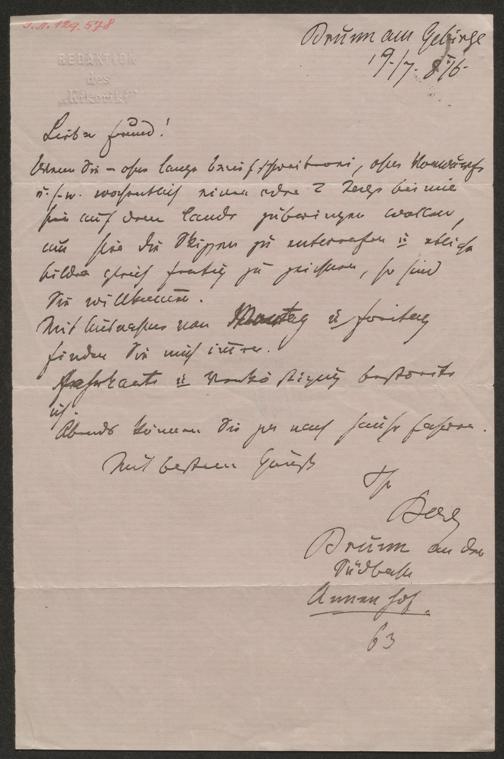 I.N. 129.578
REDAKTION
des
„Kikeriki“
Brunn am Gebirge
19./7. 86.
Lieber Freund!
Wenn Sie – ohne lange Briefschreiberei, ohne Vorwürfe
u.s.w. wöchentlich einen oder 2 Tage bei mir
hier auf dem Lande zubringen wollen,
um hier die Skizzen zu entwerfen u. etliche
Bilder gleich fertig zu zeichnen, so sind
Sie willkommen.
Mit Ausnahme von Montag u. Freitag
finden Sie mich immer.
Fahrkarte u. Verköstigung bestreite
ich.
Abends können Sie ja nach Hause fahren.
Mit bestem Gruß
Ihr
Berg
Brunn an der
Südbahn
Annenhof
63